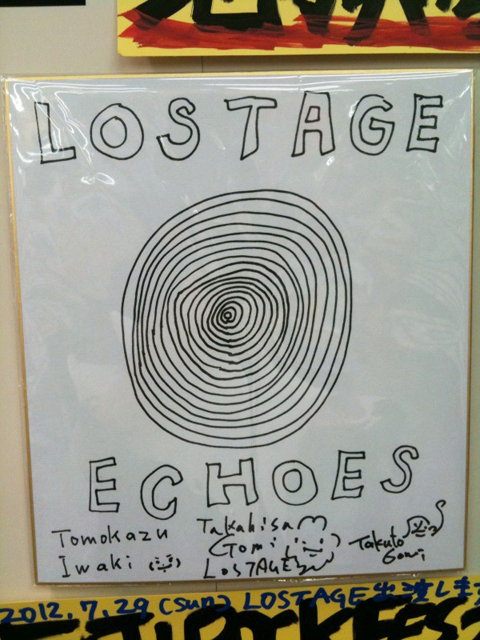 LOSTAGE
ECHOES
Tomokazu
Iwaki
Takahisa
Gomi
LOSTAGE
Takuto
Gomi
2012.7.29 (sun) LOSTAGE出演しま